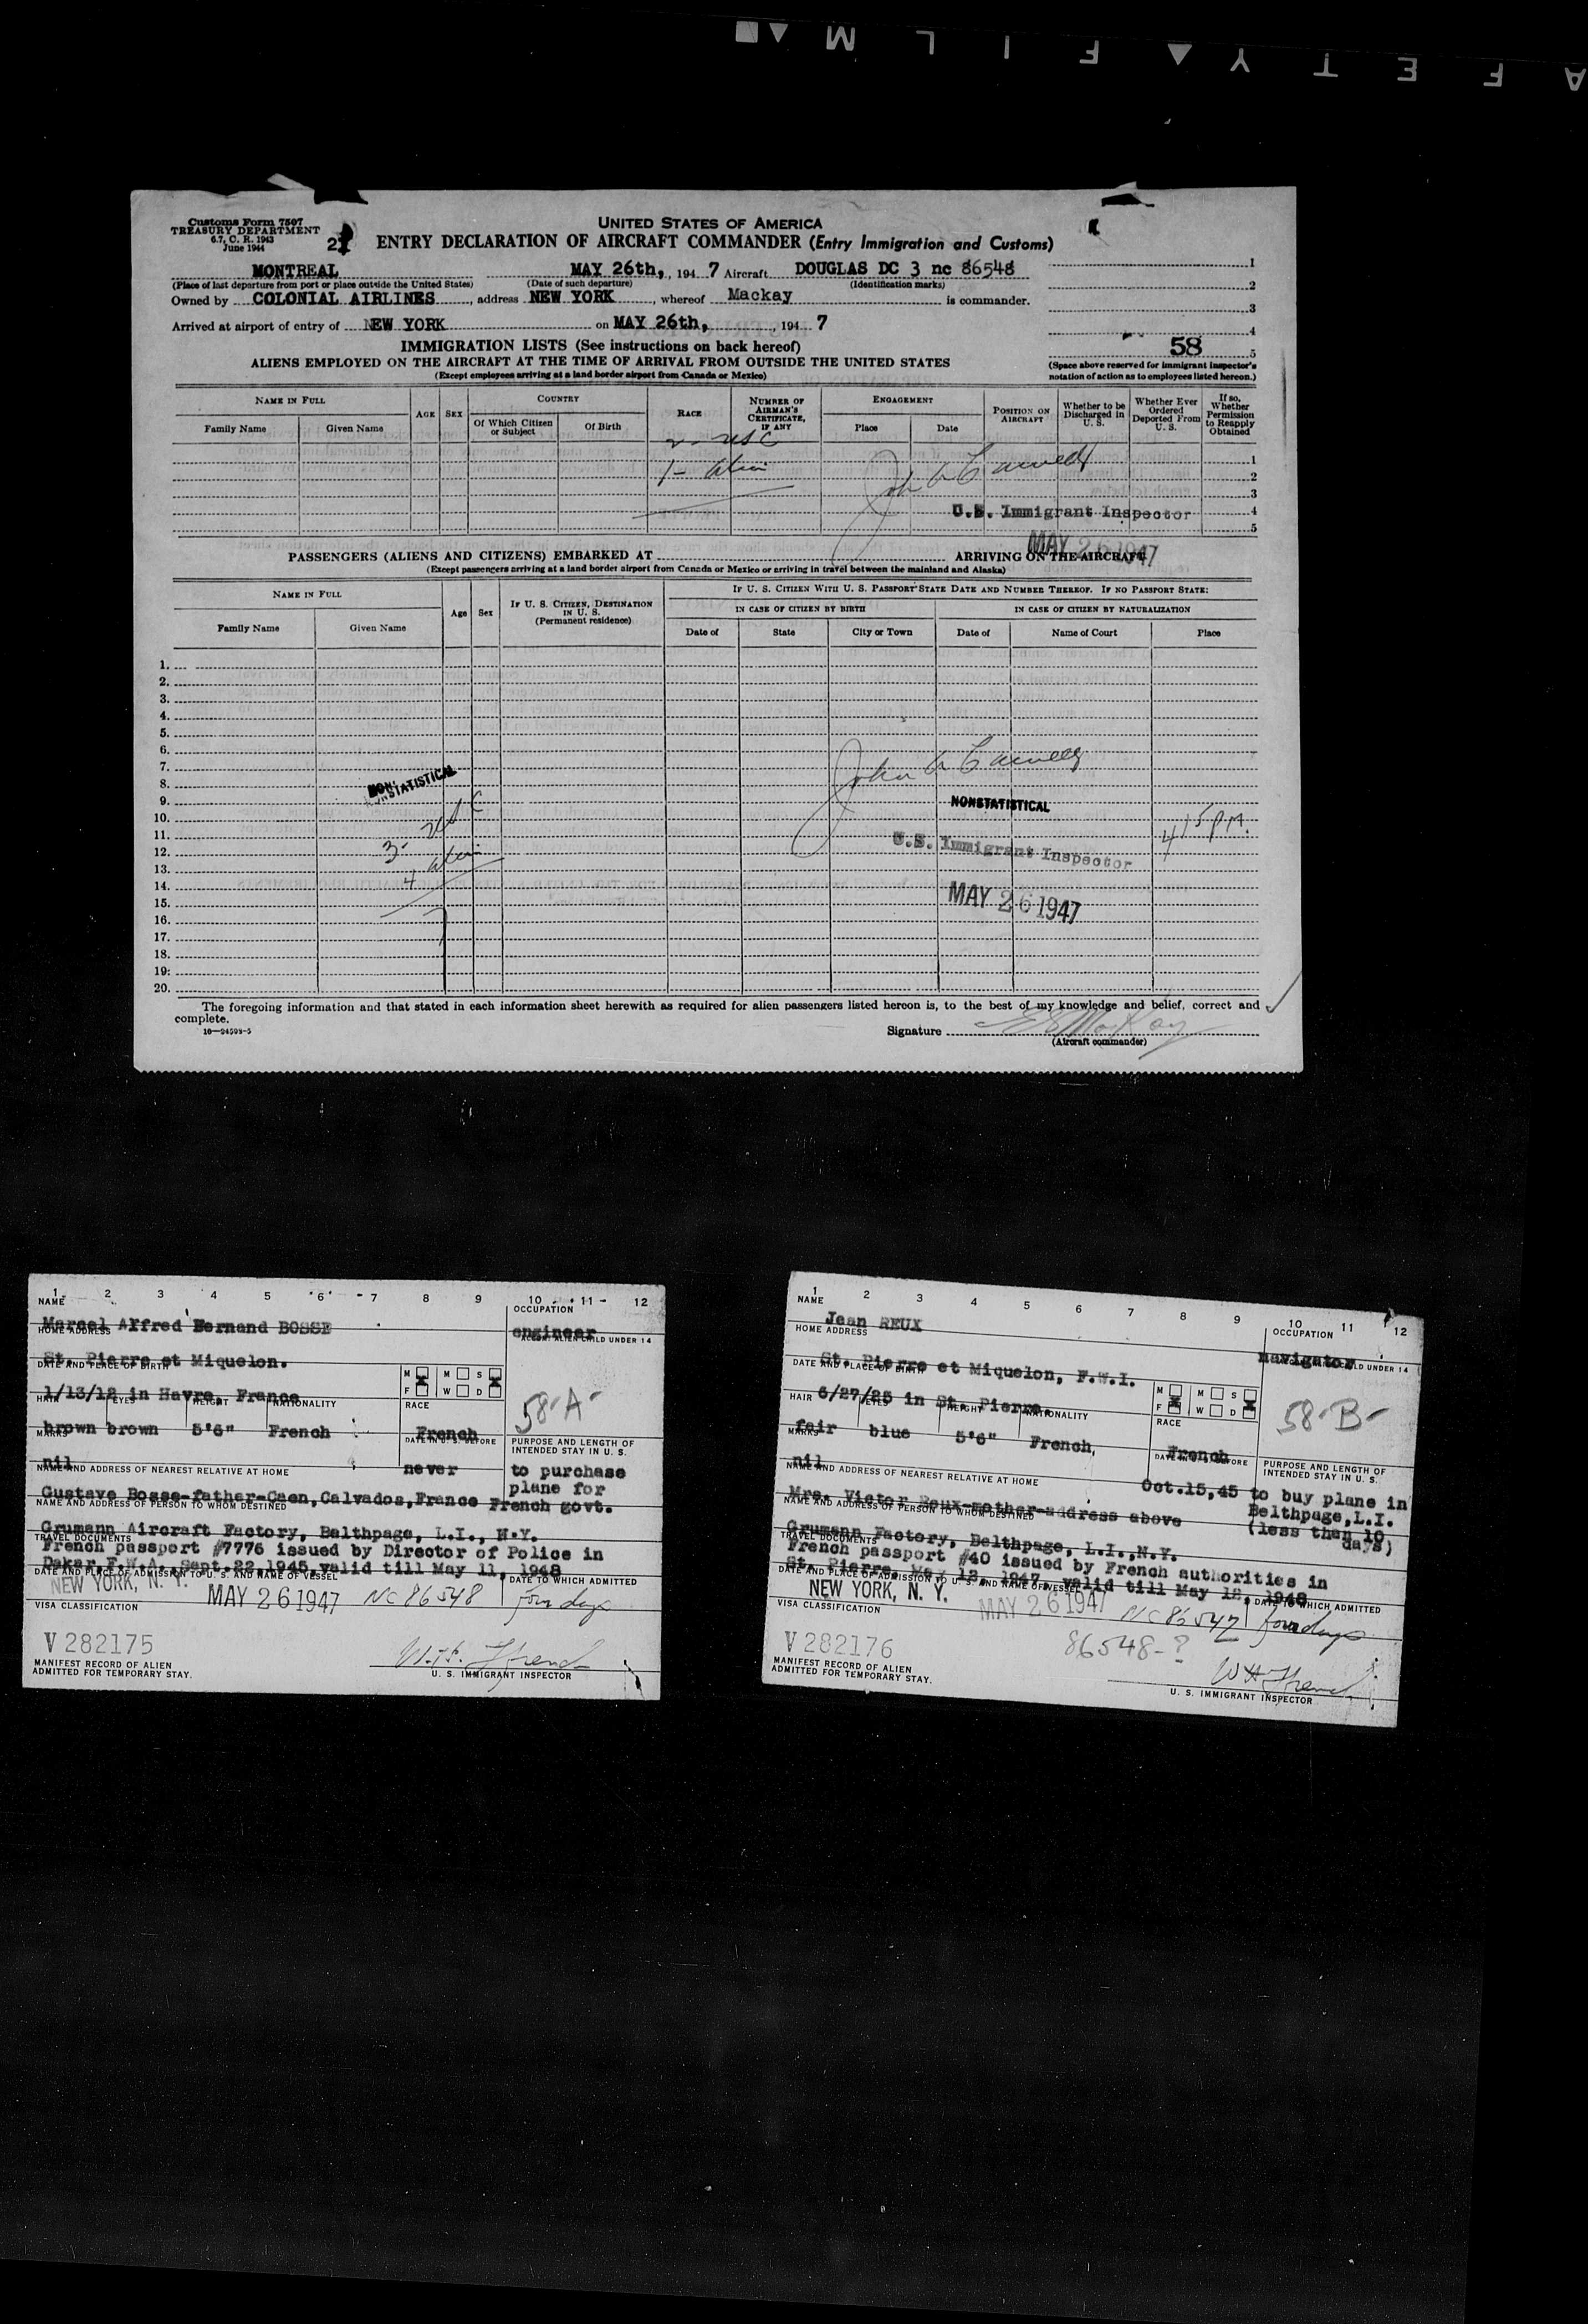 SAFETY FILM
Customs Form 7507
TREASURY DEPARTMENT
6.7, C. R. 1943
June 1944
UNITED STATES OF AMERICA
ENTRY DECLARATION OF AIRCRAFT COMMANDER (Entry Immigration and Customs)
MONTREAL MAY 26th, , 194 7 Aircraft DOUGLAS DC 3 nc 86548
(Place of last departure from port or place outside the United States) (Date of such departure) (Identification marks)
Owned by COLONIAL AIRLINES , address NEW YORK , whereof Mackay is commander.
Arrived at airport of entry of NEW YORK on MAY 26th, , 194 7
1
2
3
4
58 5
(Space above reserved for immigrant inspector's notation of action as to employees listed hereon.)
IMMIGRATION LISTS (See instructions on back hereof)
ALIENS EMPLOYED ON THE AIRCRAFT AT THE TIME OF ARRIVAL FROM OUTSIDE THE UNITED STATES
(Except employees arriving at a land border airport from Canada or Mexico)
NAME IN FULL
Family Name Given Name
AGE SEX
COUNTRY
Of Which Citizen or Subject Of Birth
RACE
NUMBER OF AIRMAN'S CERTIFICATE, IF ANY
ENGAGEMENT
Place Date
POSITION ON AIRCRAFT
Whether to be Discharged in U. S.
Whether Ever Ordered Deported From U. S.
If so, Whether Permission to Reapply Obtained
2 - USC
1 - alien
1
2
3
4
5
U.S. Immigrant Inspector
MAY 26 1947
PASSENGERS (ALIENS AND CITIZENS) EMBARKED AT ARRIVING ON THE AIRCRAFT
(Except passengers arriving at a land border airport from Canada or Mexico or arriving in travel between the mainland and Alaska)
NAME IN FULL
Family Name Given Name
Age Sex
IF U. S. CITIZEN, DESTINATION IN U. S. (Permanent residence)
IF U. S. CITIZEN WITH U. S. PASSPORT STATE DATE AND NUMBER THEREOF. IF NO PASSPORT STATE:
IN CASE OF CITIZEN BY BIRTH IN CASE OF CITIZEN BY NATURALIZATION
Date of State City or Town Date of Name of Court Place
1.
2.
3.
4.
5.
6.
7.
8.
9.
10.
11.
12.
13.
14.
15.
16.
17.
18.
19.
20.
NONSTATISTICAL
3 - USC
4 alien
7
NONSTATISTICAL
415 PM.
U.S. Immigrant Inspector
MAY 26 1947
The foregoing information and that stated in each information sheet herewith as required for alien passengers listed hereon is, to the best of my knowledge and belief, correct and
complete.
Signature
(Aircraft commander)
1 2 3 4 5 6 7 8 9 10 11 12
NAME
Marcel Alfred Bernand BOSSE
OCCUPATION
engineer
HOME ADDRESS
ACCOM. ALIEN CHILD UNDER 14
St. Pierre et Miquelon.
DATE AND PLACE OF BIRTH
M M S
F W D
X X
1/13/12 in Havre, France
HAIR EYES HEIGHT NATIONALITY RACE
58-A-
brown brown 5'6" French French
MARKS DATE IN U. S. BEFORE
PURPOSE AND LENGTH OF INTENDED STAY IN U. S.
nil never
to purchase
plane for
French govt.
NAME AND ADDRESS OF NEAREST RELATIVE AT HOME
Gustave Bosse-father-Caen,Calvados,France
NAME AND ADDRESS OF PERSON TO WHOM DESTINED
Grumann Aircraft Factory, Balthpage, L.I., N.Y.
TRAVEL DOCUMENTS
French passport #7776 issued by Director of Police in
Dakar,F.W.A., Sept.22,1945,valid till May 11, 1948
DATE AND PLACE OF ADMISSION TO U. S. AND NAME OF VESSEL DATE TO WHICH ADMITTED
NEW YORK, N. Y. MAY 26 1947 NC 86548 four days
VISA CLASSIFICATION
V 282175
MANIFEST RECORD OF ALIEN
ADMITTED FOR TEMPORARY STAY.
U. S. IMMIGRANT INSPECTOR
1 2 3 4 5 6 7 8 9 10 11 12
NAME
Jean REUX
OCCUPATION
navigator
HOME ADDRESS
UNDER 14
St. Pierre et Miquelon, F.W.I.
DATE AND PLACE OF BIRTH
M M S
F W D
X X
6/27/25 in St. Pierre,
HAIR EYES HEIGHT NATIONALITY RACE
58-B-
fair blue 5'6" French, French
MARKS DATE IN U. S. BEFORE
PURPOSE AND LENGTH OF INTENDED STAY IN U. S.
nil Oct.15,45
to buy plane in
Belthpage,L.I.
(less than 10
days)
NAME AND ADDRESS OF NEAREST RELATIVE AT HOME
Mrs. Victor Reux-mother-address above
NAME AND ADDRESS OF PERSON TO WHOM DESTINED
Grumann Factory, Belthpage, L.I.,N.Y.
TRAVEL DOCUMENTS
French passport #40 issued by French authorities in
St. Pierre, May 12, 1947, valid till May 12, 1948
DATE AND PLACE OF ADMISSION TO U. S. AND NAME OF VESSEL DATE TO WHICH ADMITTED
NEW YORK, N. Y. MAY 26 1947 NC 86547 four days
VISA CLASSIFICATION
86548-?
V 282176
MANIFEST RECORD OF ALIEN
ADMITTED FOR TEMPORARY STAY.
U. S. IMMIGRANT INSPECTOR